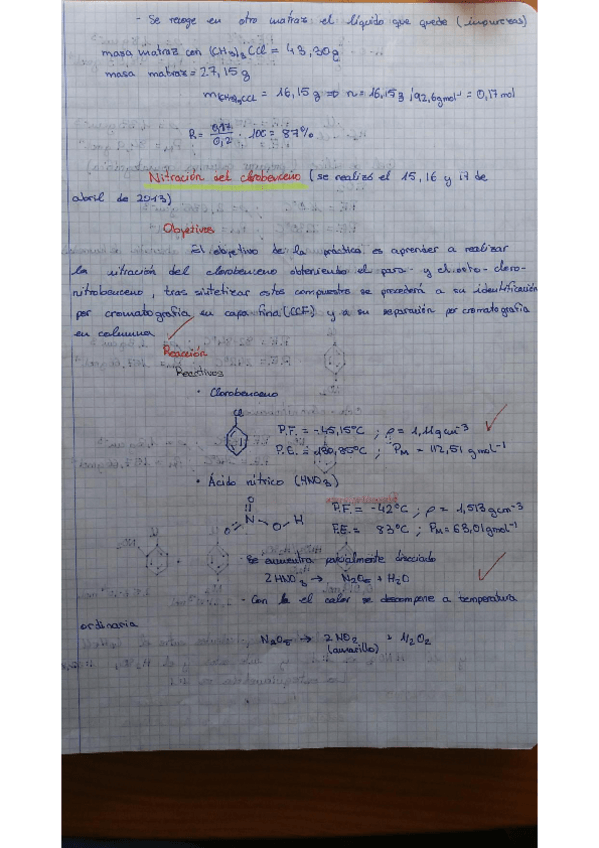 - Se recoge en otro matraz el líquido que quede (impurezas)
masa matraz con (CH3)3CCl = 43,30g
masa matraz = 27,15g
m(CH3)3CCl = 16,15g ⇒ n = 16,15g /92,6gmol⁻¹ = 0,17mol
R = 0,17/0,2 · 100 = 87%
Nitración del clorobenceno (se realizó el 15, 16 y 17 de
abril de 2013)
Objetivos
El objetivo de la práctica es aprender a realizar
la nitración del clorobenceno obteniendo el para- y el orto-cloro-
nitrobenceno, tras sintetizar estos compuestos se procederá a su identificación
por cromatografía en capa fina (CCF) y a su separación por cromatografía
en columna
Reacción
Reactivos
· Clorobenceno
Cl
P.F. = -45,15ºC ; ρ = 1,11gcm⁻³
P.E. = 130,85ºC ; PM = 112,51 gmol⁻¹
· Ácido nítrico (HNO3)
O
N
O O H
P.F. = -42ºC ; ρ = 1,513 gcm⁻³
P.E. = 83ºC ; PM = 63,01gmol⁻¹
- Se encuentra parcialmente disociado
2HNO3 → N2O5 + H2O
- Con el calor se descompone a temperatura
ordinaria
N2O5 → 2NO2 + 1/2O2
(amarillo)